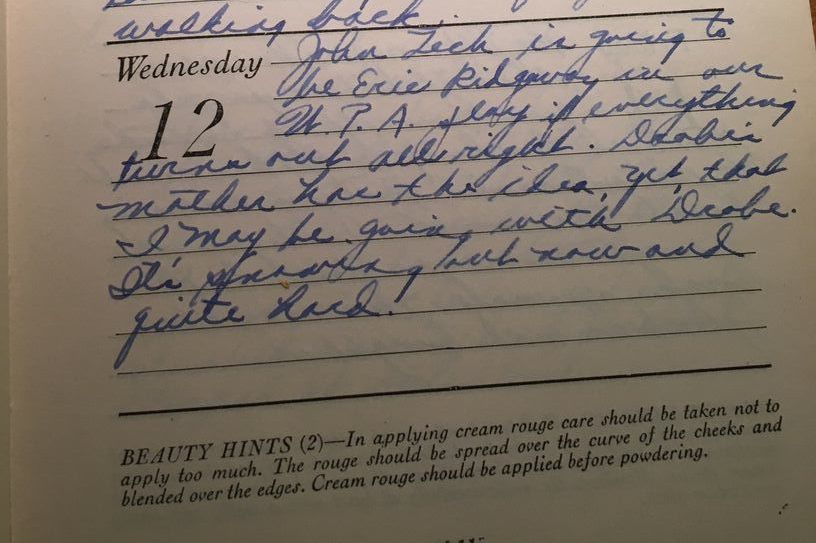 walking back.
Wednesday
12
John Tech is going to
be Eric Ridgway in our
W.P.A. play if everything
turns out all right.
mother has the idea, yet, that
I may be going with Drobe.
It's snowing out now and
quite hard!
BEAUTY HINTS (2)—In applying cream rouge care should be taken not to
apply too much. The rouge should be spread over the curve of the cheeks and
blended over the edges. Cream rouge should be applied before powdering.